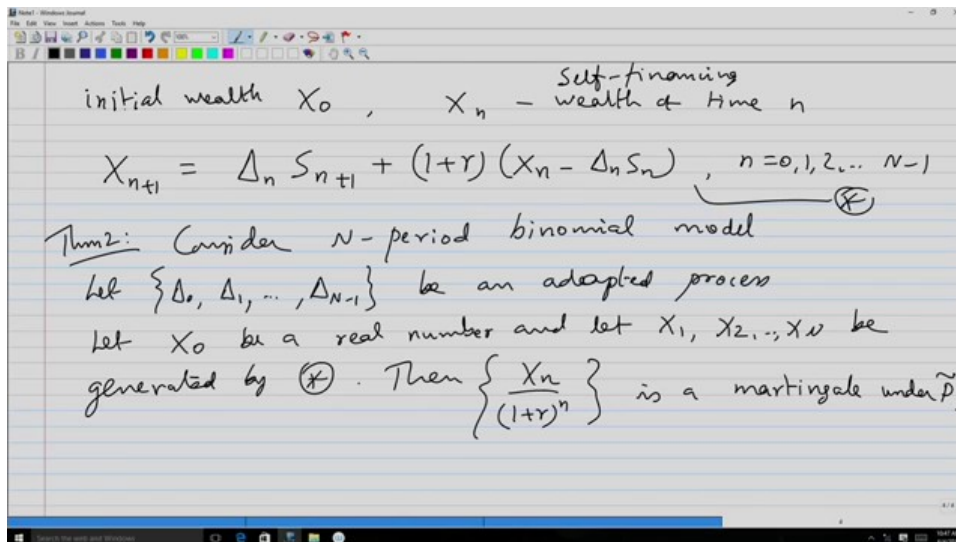 Note1 - Windows Journal
File Edit View Insert Actions Tools Help
100%
B I
self-financing
initial wealth X₀ , Xₙ - wealth at time n
Xₙ₊₁ = Δₙ Sₙ₊₁ + (1+r) (Xₙ - Δₙ Sₙ) , n = 0, 1, 2, ... N-1
(*)
Thm2: Consider N-period binomial model
Let {Δ₀, Δ₁, ... , Δ_{N-1}} be an adapted process
Let X₀ be a real number and let X₁, X₂, .., X_N be
generated by (*). Then { Xₙ / (1+r)ⁿ } is a martingale under P̃
4/4
4
Search the web and Windows